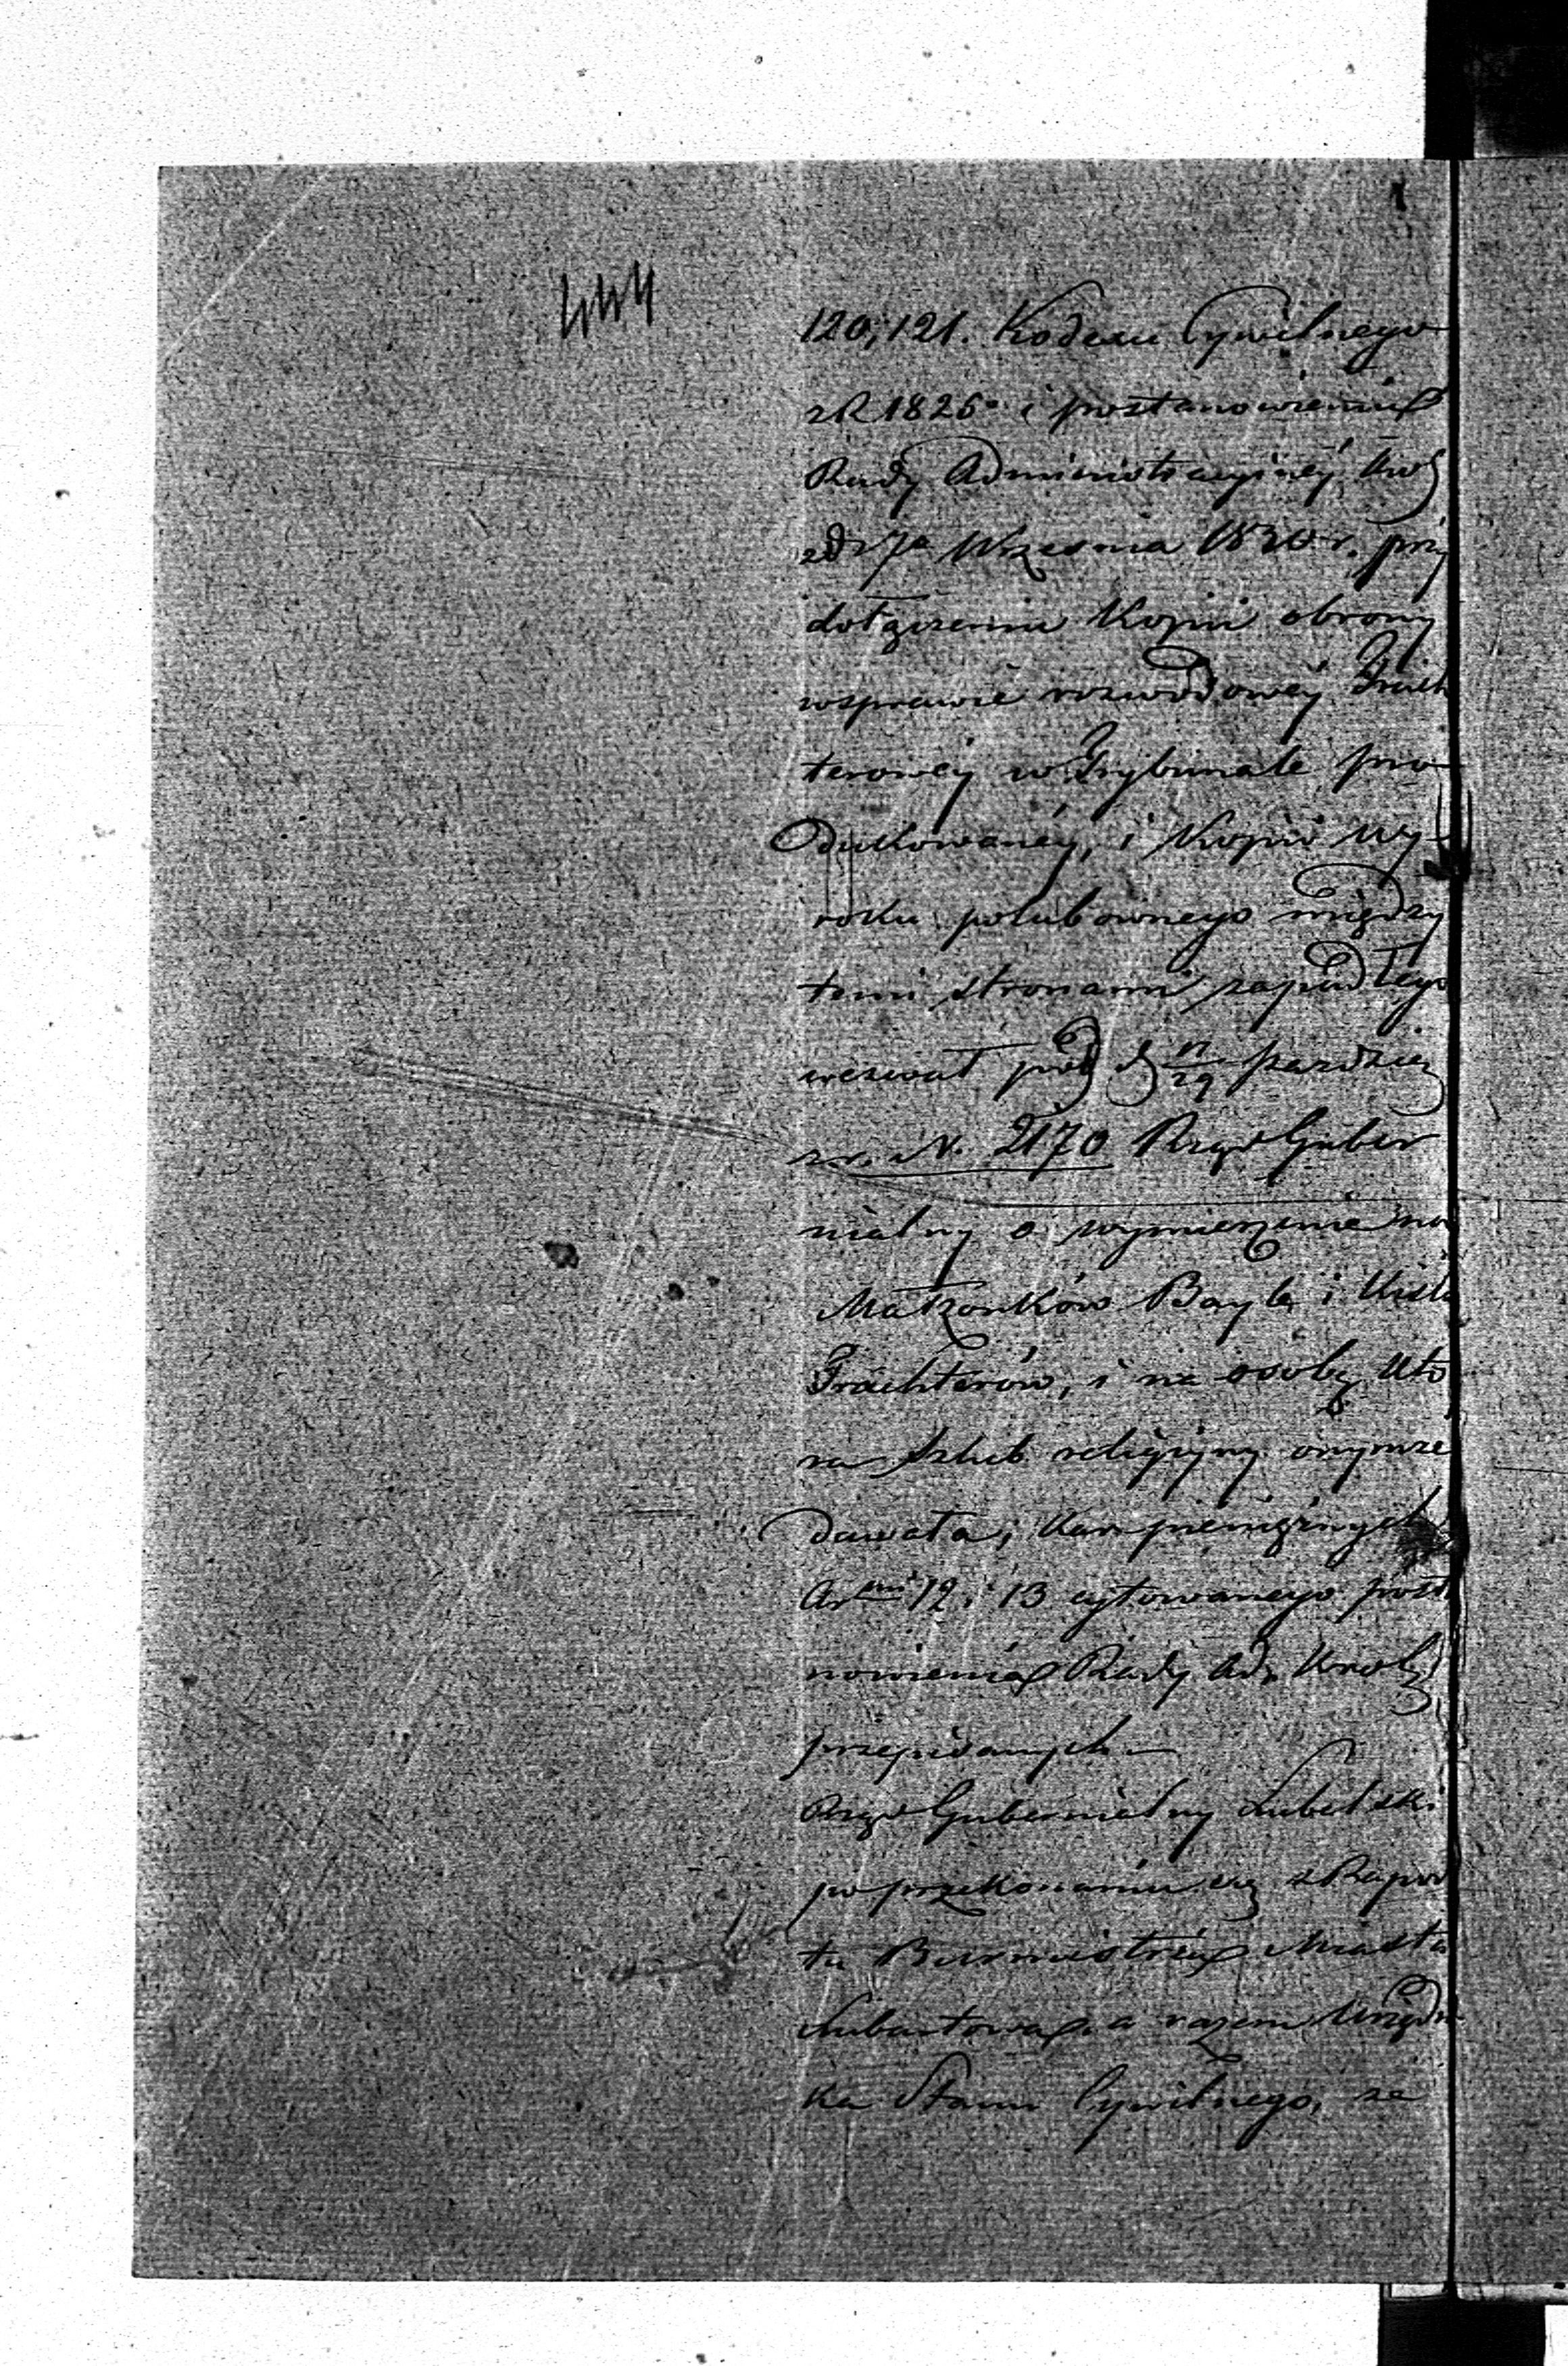 444
120, 121. Kodexu Cywilnego
z R 1825o i postanowienia
Rady Administracyinéy Król
zd 7o Września 1830 r. przy
dołączeniu Kopii obrony
wsprawie rozwodowéy Tracht
terowéy w Trybunale pro-
dukowanéy, i Kopii wy-
roku polubownego między
temi stronami zapadłego
wezwał pod d 17/29 Paździer
z r. N. 2170 Rząd Guber
nialny o wymierzenie na
Małżonków Bayla i
Trachterów, i na osobę któ
ra szlub religijny onymże
dawała, kar pieniężnych
Artmi 12 i 13 cytowanego posta
nowienia Rady Adm Królę
przepisanych –
Rząd Gubernialny Lubelski
po przekonaniu się z Rapor
tu Burmistrza Miasta
Lubartowa, a razem Urzędni
ka Stanu Cywilnego, że